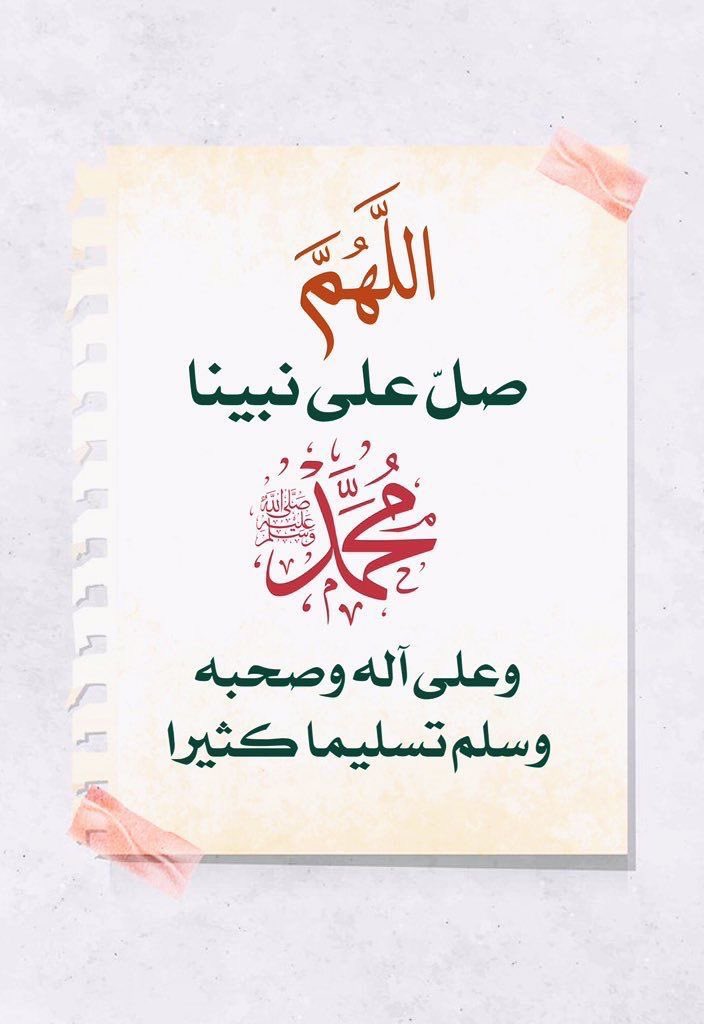 اللَّهُمَّ
صلّ على نبينا
مُحمَّد
صَلَّى اللَّهُ
عَلَيْهِ
وَسَلَّمَ
وعلى آله وصحبه
وسلم تسليما كثيرا